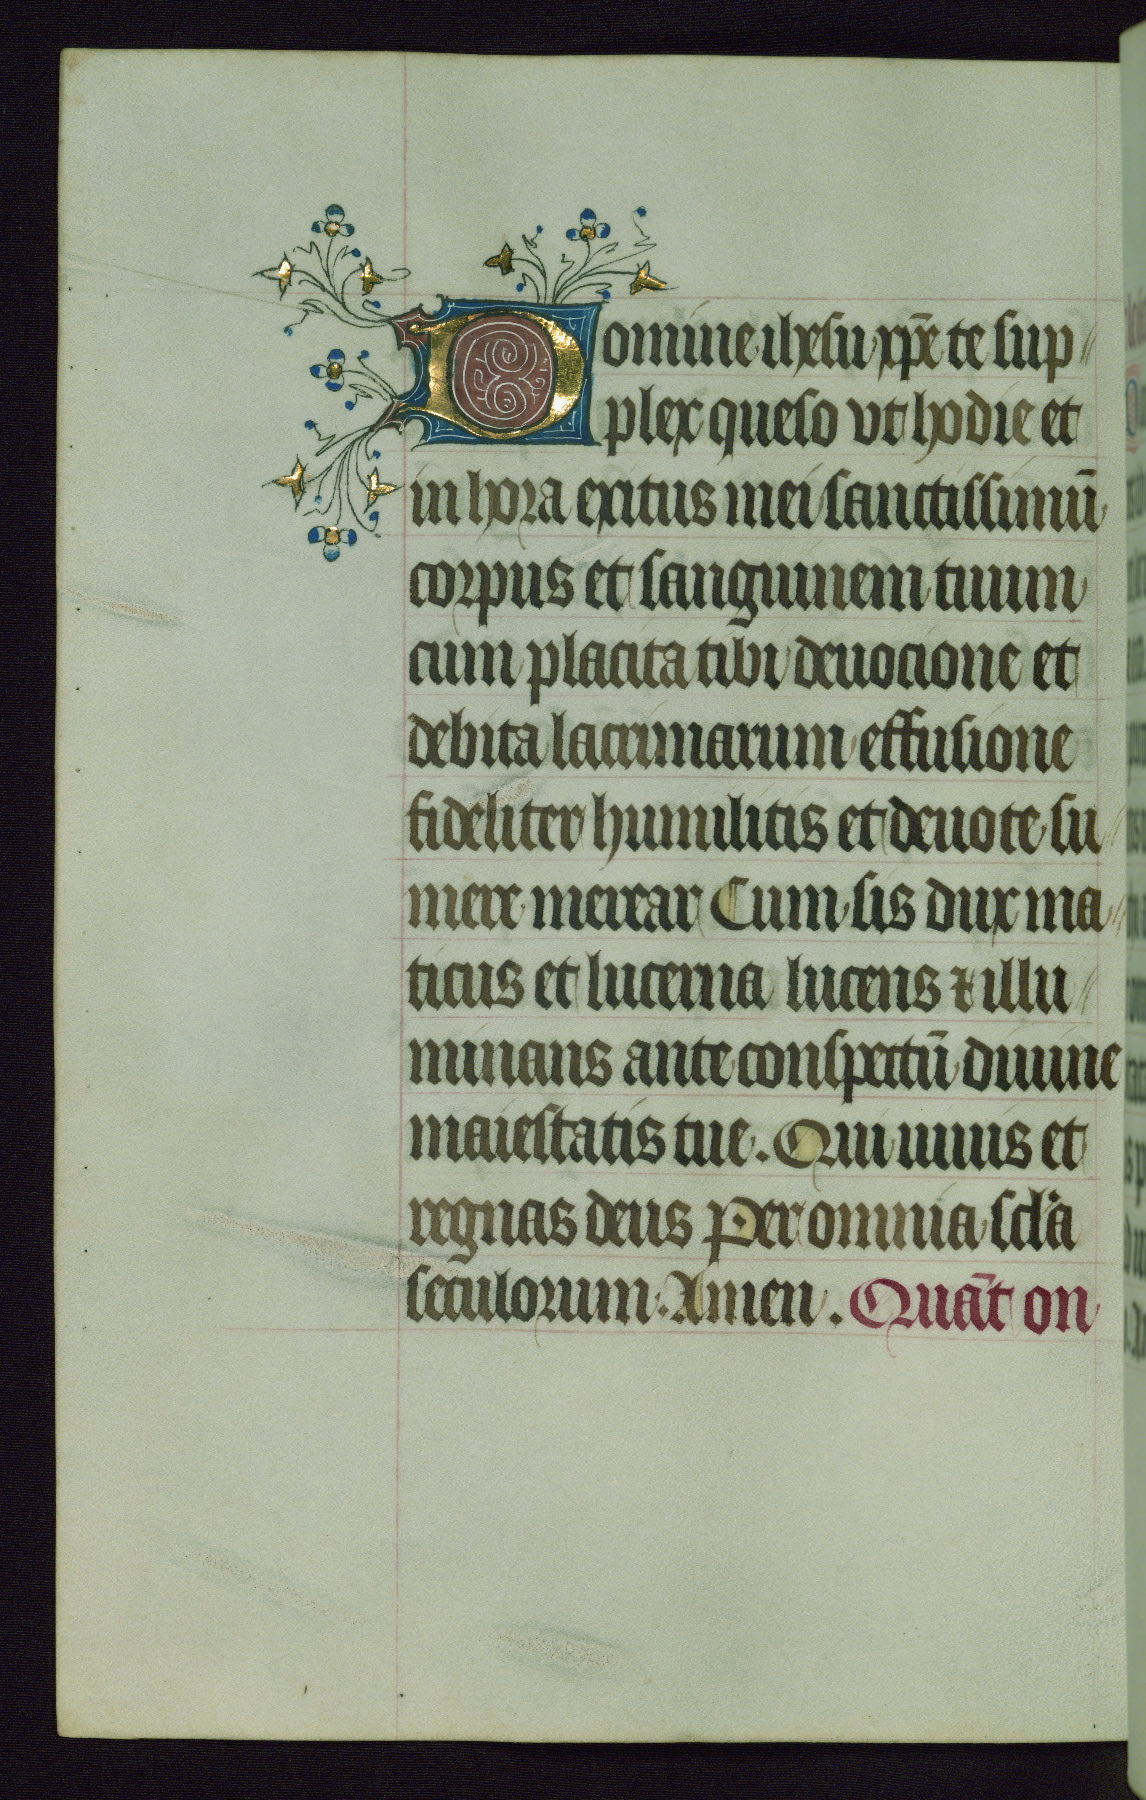 Domine ihesu xp̄e te sup
plex queso vt hodie et
in hora exitus mei sanctissimū
corpus et sanguinem tuum
cum placita tibi deuocione et
debita lacrimarum effusione
fideliter humilitis et deuote su
mere merear Cum sis dux ma
ticus et lucerna lucens ⁊ illu
minans ante conspectū diuine
maiestatis tue. Qui uiuis et
regnas deus Per omnia scl'a
seculorum. Amen. Quāt on